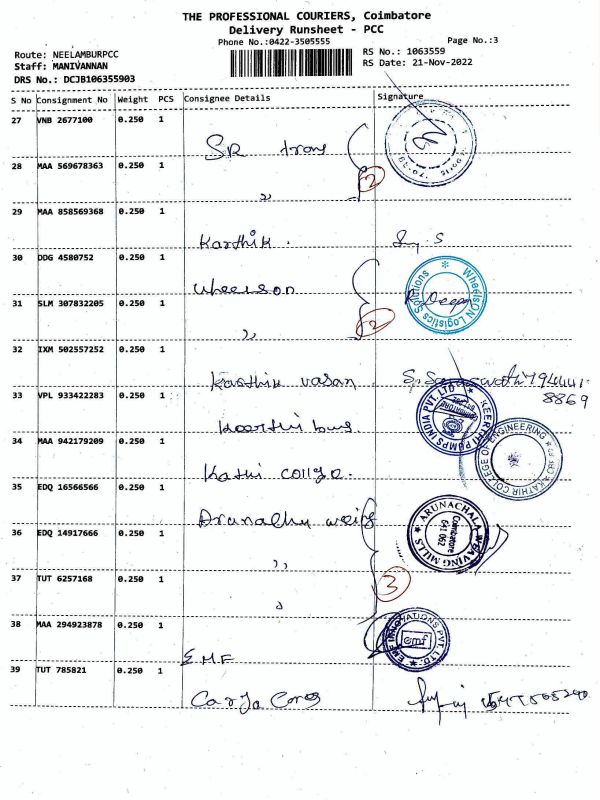 THE PROFESSIONAL COURIERS, Coimbatore
Delivery Runsheet - PCC
Phone No.:0422-3505555
Page No.:3
Route: NEELAMBURPCC
RS No.: 1063559
Staff: MANIVANNAN
RS Date: 21-Nov-2022
DRS No.: DCJB106355903
S No Consignment No Weight PCS Consignee Details Signature
27 VNB 2677100 0.250 1
SR trans
28 MAA 569678363 0.250 1
" 2
29 MAA 858569368 0.250 1
Karthik. S
30 DDG 4580752 0.250 1
Wheelson
WheelsON Logistics Solutions
R. Deepa
31 SLM 307832205 0.250 1
" 2
32 IXM 502557252 0.250 1
Karthik vasan
8869
33 VPL 933422283 0.250 1
Keerthi
KEERTHI PUMPS INDIA PVT. LTD
34 MAA 942179209 0.250 1
Kathir
KATHIR COLLEGE OF ENGINEERING
35 EDQ 16566566 0.250 1
ARUNACHALA WEAVING MILLS
Coimbatore
641 062
36 EDQ 14917666 0.250 1
"
37 TUT 6257168 0.250 1
" 3
38 MAA 294923878 0.250 1
EMF
EMF INNOVATIONS PVT. LTD.
emf
39 TUT 785821 0.250 1